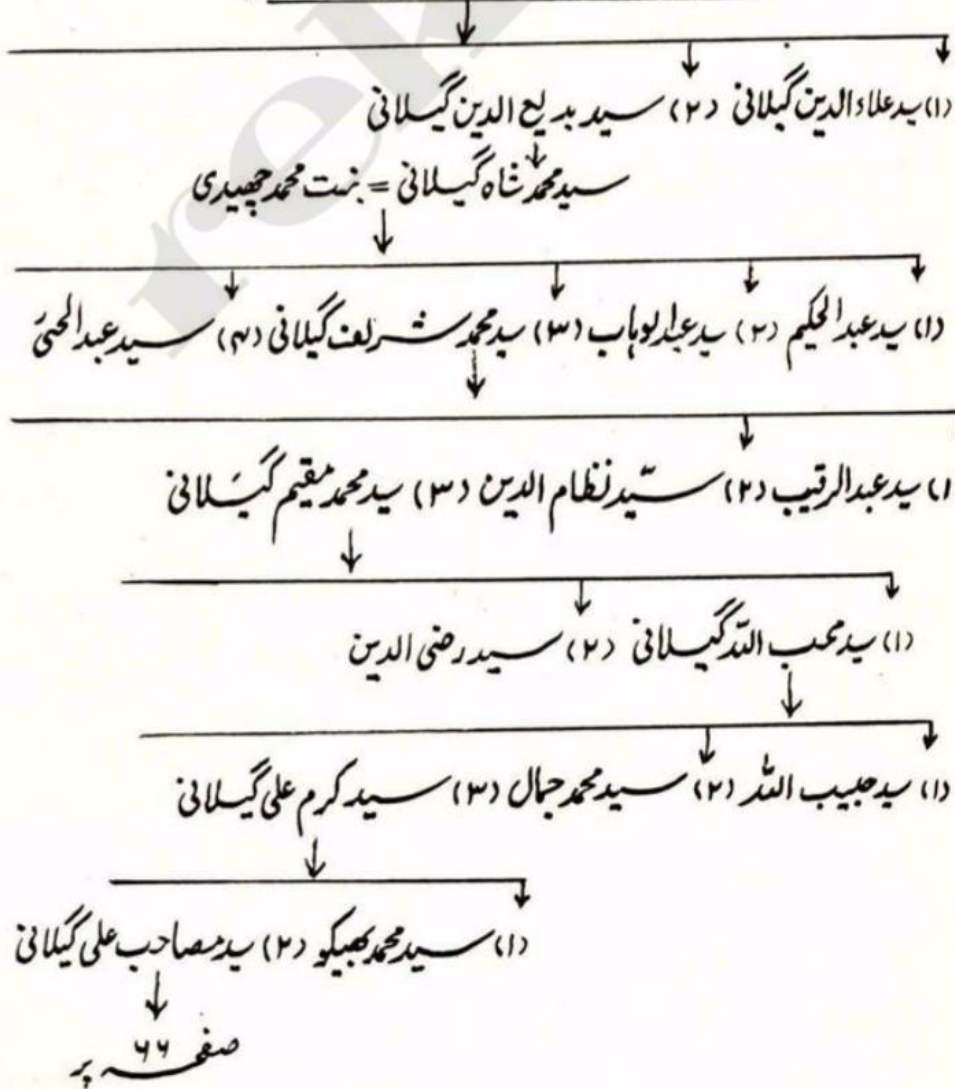 (۱) سید علاء الدین گیلانی (۲) سید بدیع الدین گیلانی
سید محمد شاہ گیلانی = بنت محمد چھیدی
(۱) سید عبدالحکیم (۲) سید عبدالوہاب (۳) سید محمد شریف گیلانی (۴) سید عبدالحئی
(۱) سید عبدالرقیب (۲) سیّد نظام الدین (۳) سید محمد مقیم گیلانی
(۱) سید محب اللہ گیلانی (۲) سید رضی الدین
(۱) سید حبیب اللہ (۲) سید محمد جمال (۳) سید کرم علی گیلانی
(۱) سید محمد بھیکو (۲) سید مصاحب علی گیلانی
صفحہ ۶۶ پر
rek